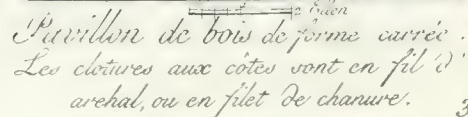 2 Ellen
Pavillon de bois de forme carrée.
Les clotures aux côtes sont en fil d'
arehal, ou en filet de chanure.
3